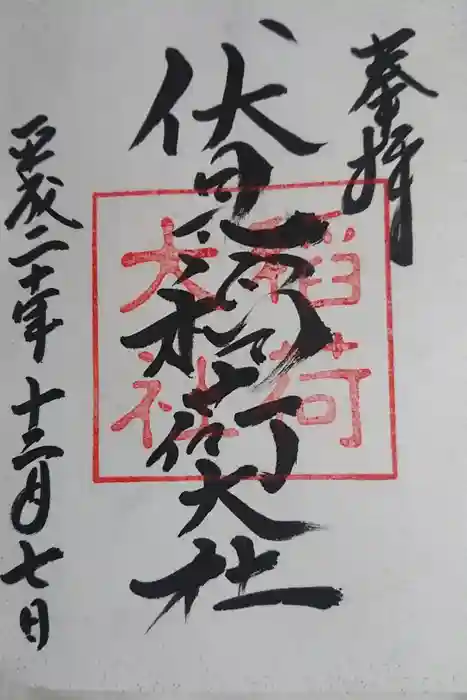 奉拝
伏見稲荷大社
稲荷
大社
平成二十年十二月七日